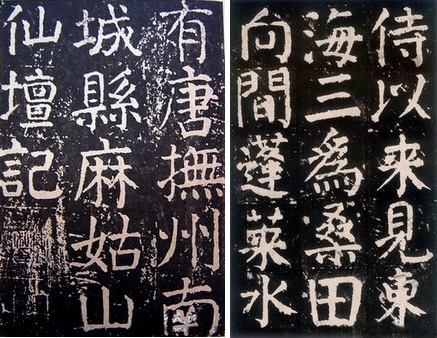 有唐撫州南
城縣麻姑山
仙壇記
侍以来見東
海三爲桑田
向間蓬萊水